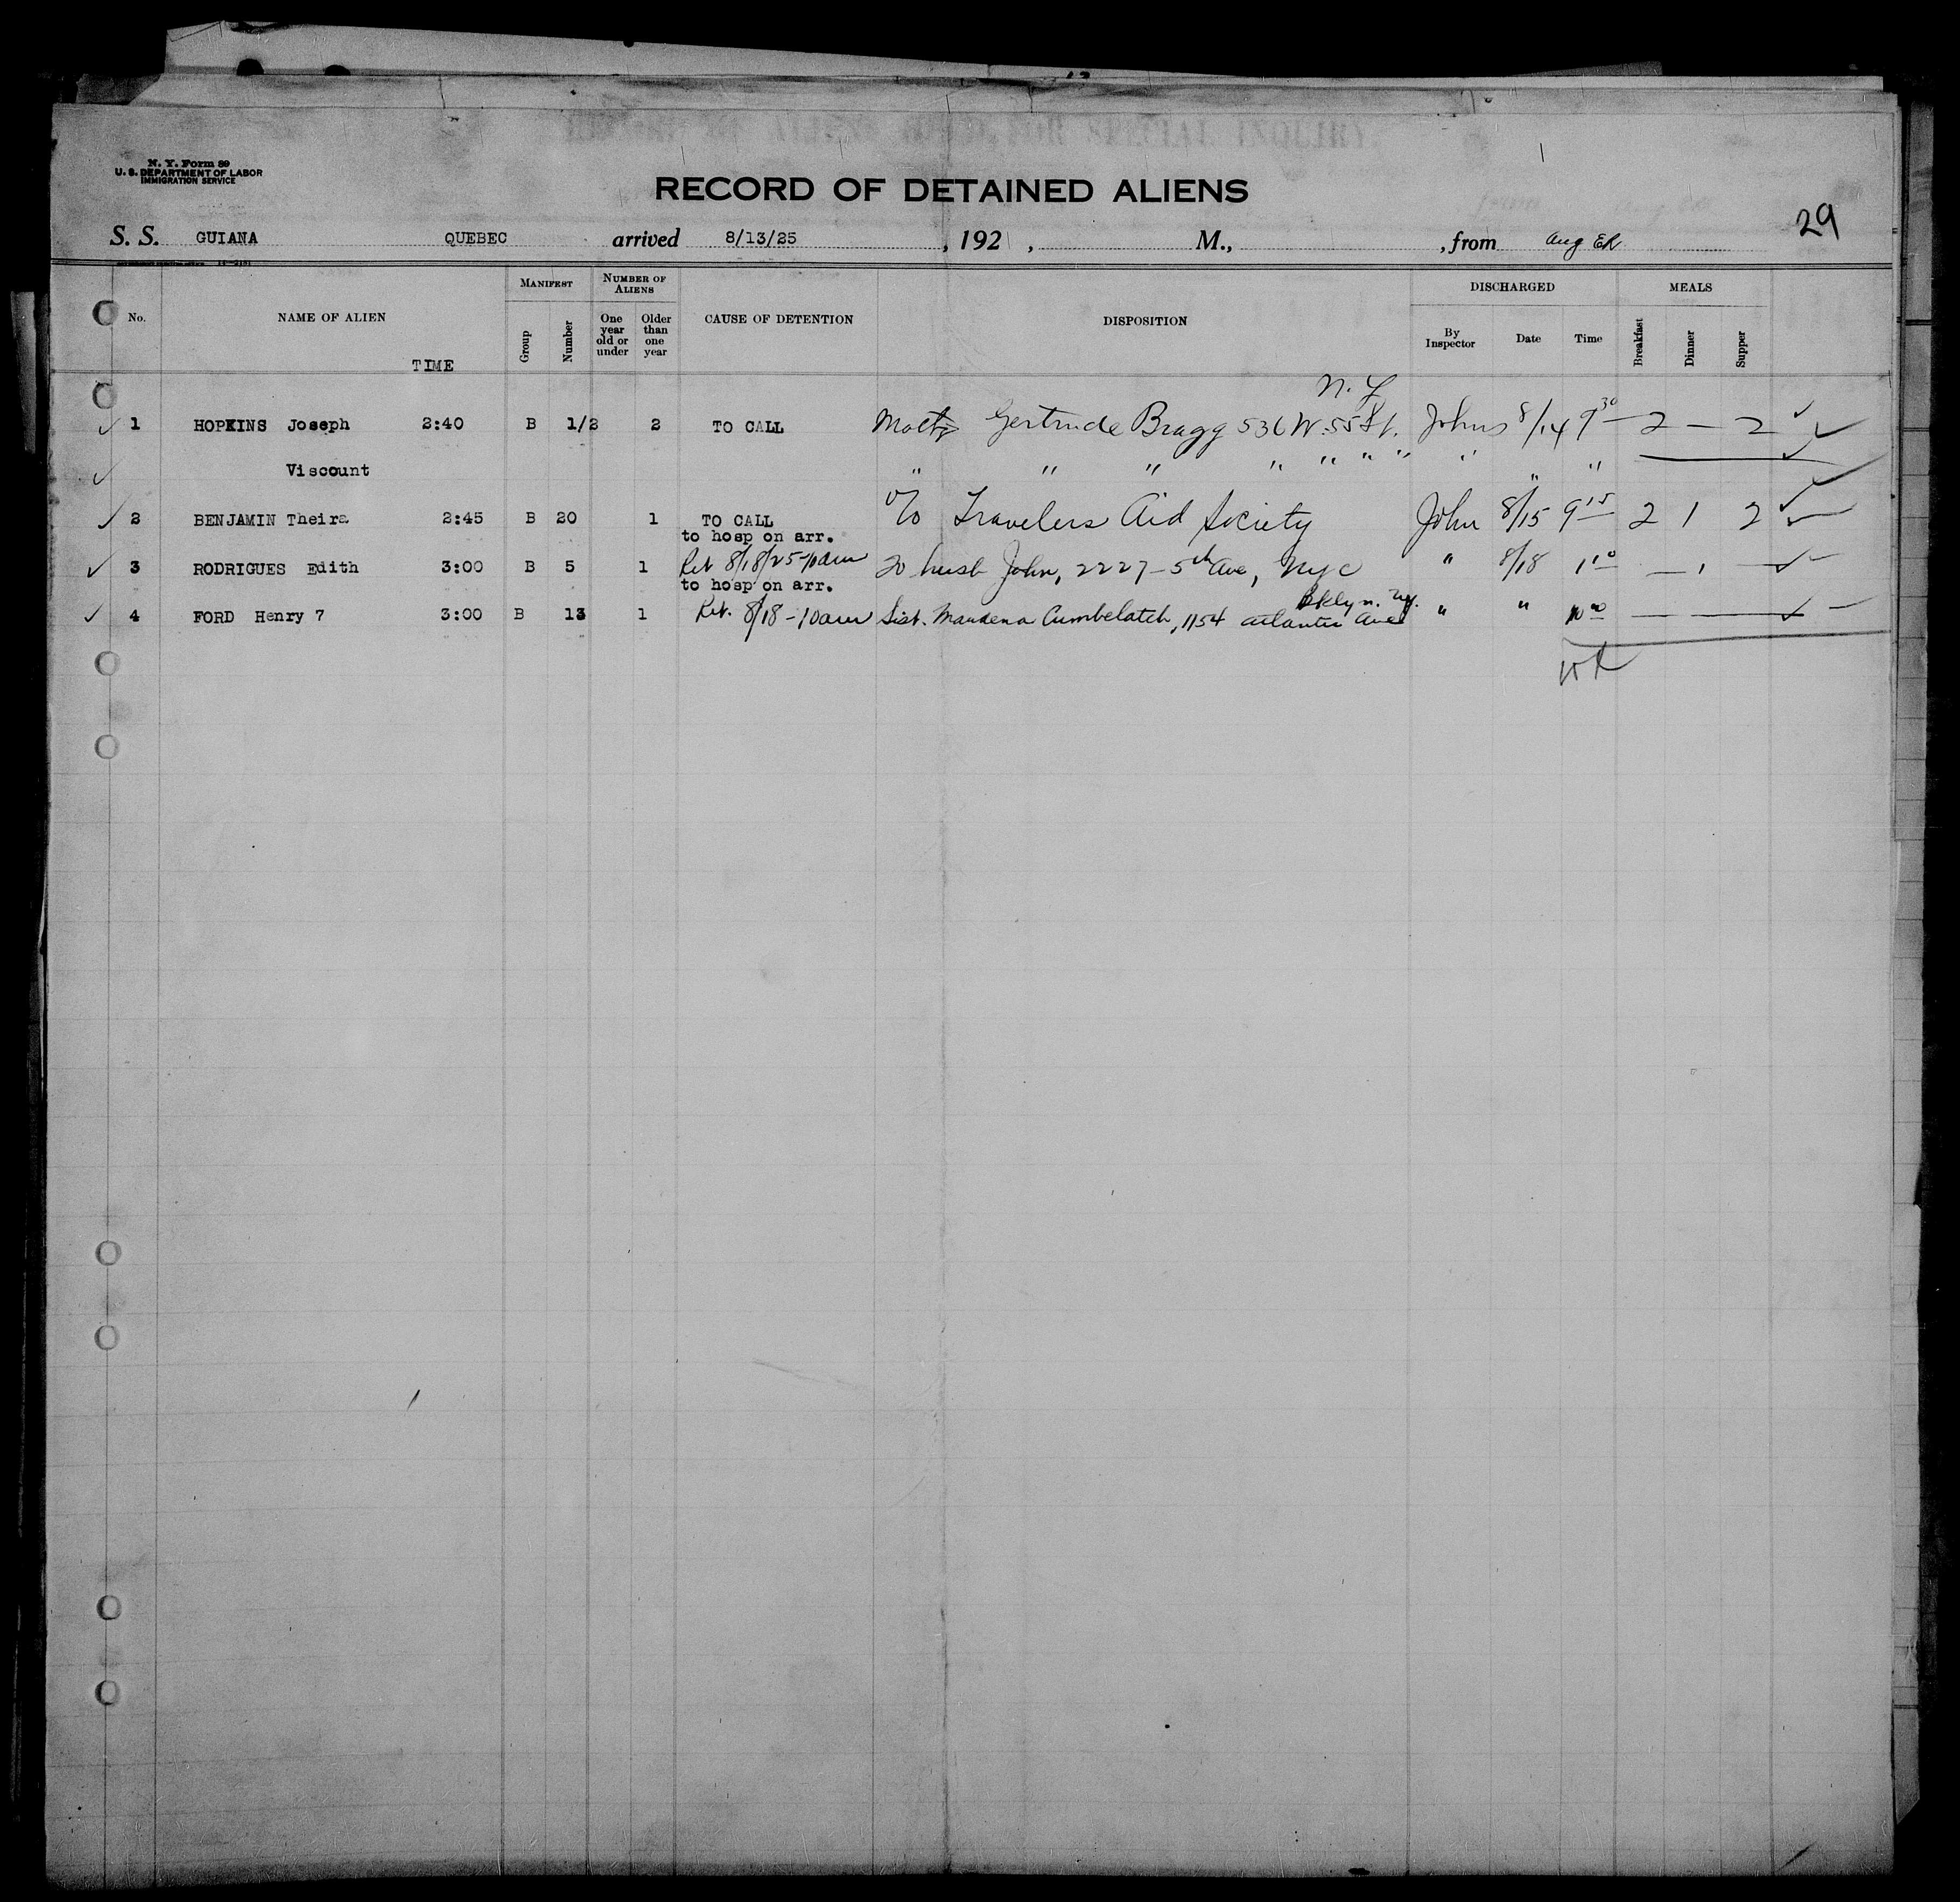 N. Y. Form 89
U. S. DEPARTMENT OF LABOR
IMMIGRATION SERVICE
RECORD OF DETAINED ALIENS
29
S. S. GUIANA QUEBEC arrived 8/13/25 , 192 , M., , from Aug
MANIFEST NUMBER OF ALIENS DISCHARGED MEALS
No. NAME OF ALIEN TIME Group Number One year old or under Older than one year CAUSE OF DETENTION DISPOSITION By Inspector Date Time Breakfast Dinner Supper
N. Y.
1 HOPKINS Joseph 2:40 B 1/2 2 TO CALL Gertrude Bragg 536 W. 55 St. Johns 8/14 9 30 2 — 2
Viscount " " " " " " " " " "
2 BENJAMIN Theira 2:45 B 20 1 TO CALL c/o Travelers Aid Society John 8/15 9 15 2 1 2
to hosp on arr.
3 RODRIGUES Edith 3:00 B 5 1 Ret 8/18/25 10am To husb John, 2227 - 5th Ave, NYC " 8/18 1 — 1 —
to hosp on arr.
Bklyn. NY.
4 FORD Henry 7 3:00 B 13 1 Ret. 8/18 - 10am Sist. 1154 Atlantic Ave " " — — —